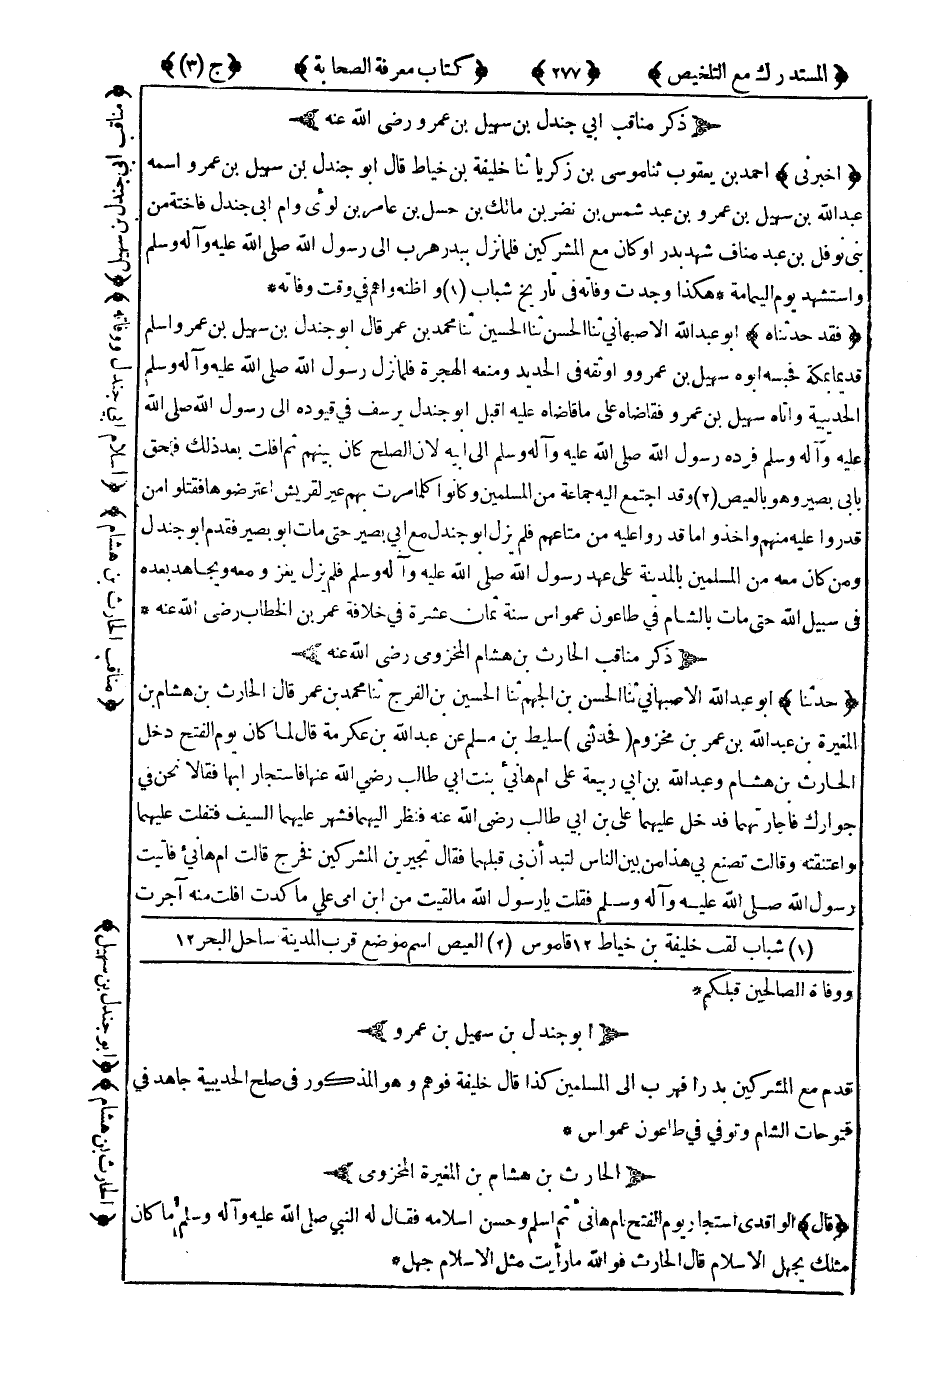 ﴿ المستدرك مع التلخيص ﴾ ﴿ ٢٧٧ ﴾ ﴿ كتاب معرفة الصحابة ﴾ ﴿ ج (٣) ﴾
ذكر مناقب ابي جندل بن سهيل بن عمرو رضى الله عنه
﴿ اخبرنى ﴾ احمد بن يعقوب ثنا موسى بن زكريا ثنا خليفة بن خياط قال ابو جندل بن سهيل بن عمرو اسمه
عبدالله بن سهيل بن عمرو بن عبد شمس بن نضر بن مالك بن حسل بن عامر بن لوئى وام ابى جندل فاختة من
بنى نوفل بن عبد مناف شهد بدرا وكان مع المشركين فلما نزل ببدر هرب الى رسول الله صلى الله عليه وآله وسلم
واستشهد يوم اليمامة * هكذا وجدت وفاته فى تاريخ شباب (١) و اظنه واهم فى وقت وفاته *
﴿ فقد حدثناه ﴾ ابو عبدالله الاصبهاني ثنا الحسن ثنا الحسين ثنا محمد بن عمر قال ابو جندل بن سهيل بن عمرو اسلم
قديما بمكة فحبسه ابوه سهيل بن عمرو و اوثقه فى الحديد ومنعه الهجرة فلما نزل رسول الله صلى الله عليه وآله وسلم
الحديبية واتاه سهيل بن عمرو فقاضاه على ما قاضاه عليه اقبل ابو جندل يرسف في قيوده الى رسول الله صلى الله
عليه وآله وسلم فرده رسول الله صلى الله عليه وآله وسلم الى ابيه لان الصلح كان بينهم ثم افلت بعد ذلك فلحق
بابى بصير وهو بالعيص (٢) وقد اجتمع اليه جماعة من المسلمين وكانوا كلما مرت بهم عير لقريش اعترضوها فقتلوا من
قدروا عليه منهم واخذوا ما قدروا عليه من متاعهم فلم يزل ابو جندل مع ابي بصير حتى مات ابو بصير فقدم ابو جندل
ومن كان معه من المسلمين بالمدينة على عهد رسول الله صلى الله عليه وآله وسلم فلم يزل يغزو معه ويجاهد بعده
فى سبيل الله حتى مات بالشام في طاعون عمواس سنة ثمان عشرة في خلافة عمر بن الخطاب رضى الله عنه *
ذكر مناقب الحارث بن هشام المخزومى رضى الله عنه
﴿ حدثنا ﴾ ابو عبدالله الاصبهاني ثنا الحسن بن الجهم ثنا الحسين بن الفرج ثنا محمد بن عمر قال الحارث بن هشام بن
المغيرة بن عبدالله بن عمر بن مخزوم ( فحدثنى ) سليط بن مسلم عن عبدالله بن عكرمة قال لما كان يوم الفتح دخل
الحارث بن هشام وعبدالله بن ابي ربيعة على ام هانئ بنت ابي طالب رضي الله عنها فاستجارا بها فقالا نحن في
جوارك فاجارتهما فدخل عليهما على بن ابي طالب رضى الله عنه فنظر اليهما فشهر عليهما السيف فتفلت عليهما
واعتنقته وقالت تصنع بي هذا من بين الناس لتبدأن بى قبلهما فقال تجيرين المشركين فخرج قالت ام هانئ فاتيت
رسول الله صلى الله عليه وآله وسلم فقلت يارسول الله ما لقيت من ابن امى علي ما كدت افلت منه آجرت
(١) شباب لقب خليفة بن خياط ١٢ قاموس (٢) العيص اسم موضع قرب المدينة ساحل البحر ١٢
ووفاة الصالحين قبلكم *
ابو جندل بن سهيل بن عمرو
قدم مع المشركين بدرا فهرب الى المسلمين كذا قال خليفة فوهم و هو المذكور فى صلح الحديبية جاهد في
فتوحات الشام وتوفي في طاعون عمواس *
الحارث بن هشام بن المغيرة المخزومى
﴿ قال ﴾ الواقدى استجار يوم الفتح بام هانى ثم اسلم وحسن اسلامه فقال له النبي صلى الله عليه وآله وسلم أما كان
مثلك يجهل الاسلام قال الحارث فوالله ما رأيت مثل الاسلام جهل *
﴿ مناقب ابى جندل بن سهيل ﴾ ﴿ اسلام ابي جندل ووفاته ﴾ ﴿ مناقب الحارث بن هشام ﴾
﴿ ابو جندل بن سهيل ﴾ ﴿ الحارث بن هشام ﴾